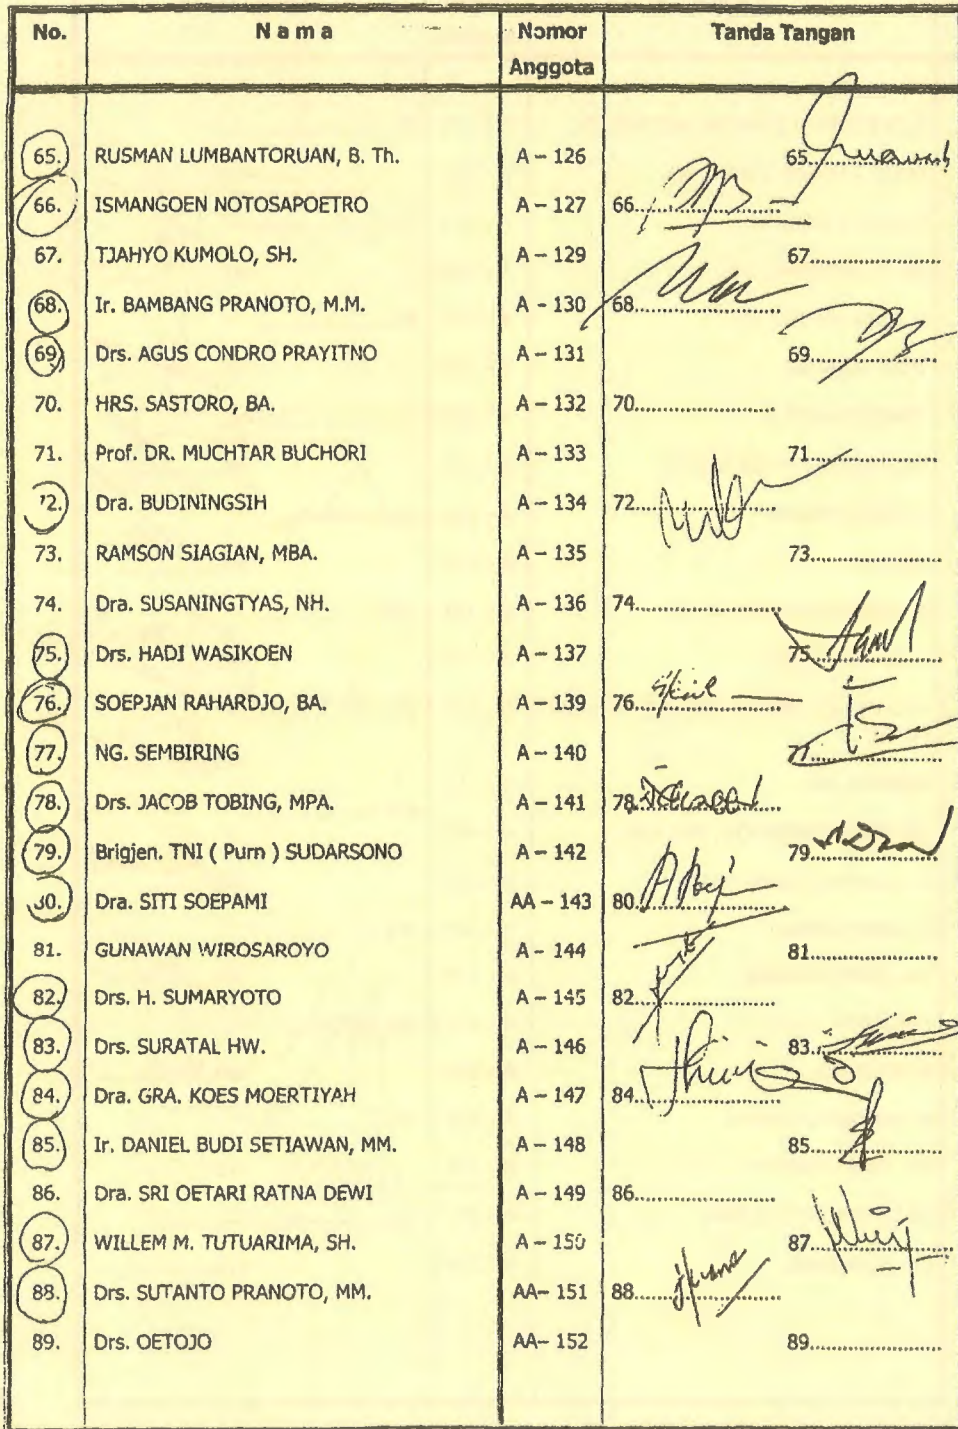 No. N a m a Nomor Anggota Tanda Tangan
65. RUSMAN LUMBANTORUAN, B. Th. A – 126 65
66. ISMANGOEN NOTOSAPOETRO A – 127 66
67. TJAHYO KUMOLO, SH. A – 129 67
68. Ir. BAMBANG PRANOTO, M.M. A - 130 68
69. Drs. AGUS CONDRO PRAYITNO A – 131 69
70. HRS. SASTORO, BA. A – 132 70
71. Prof. DR. MUCHTAR BUCHORI A – 133 71
72. Dra. BUDININGSIH A – 134 72
73. RAMSON SIAGIAN, MBA. A – 135 73
74. Dra. SUSANINGTYAS, NH. A – 136 74
75. Drs. HADI WASIKOEN A – 137 75
76. SOEPJAN RAHARDJO, BA. A – 139 76
77. NG. SEMBIRING A – 140 77
78. Drs. JACOB TOBING, MPA. A – 141 78
79. Brigjen. TNI ( Purn ) SUDARSONO A – 142 79
80. Dra. SITI SOEPAMI AA – 143 80
81. GUNAWAN WIROSAROYO A – 144 81
82. Drs. H. SUMARYOTO A – 145 82
83. Drs. SURATAL HW. A – 146 83
84. Dra. GRA. KOES MOERTIYAH A – 147 84
85. Ir. DANIEL BUDI SETIAWAN, MM. A – 148 85
86. Dra. SRI OETARI RATNA DEWI A – 149 86
87. WILLEM M. TUTUARIMA, SH. A – 150 87
88. Drs. SUTANTO PRANOTO, MM. AA– 151 88
89. Drs. OETOJO AA– 152 89